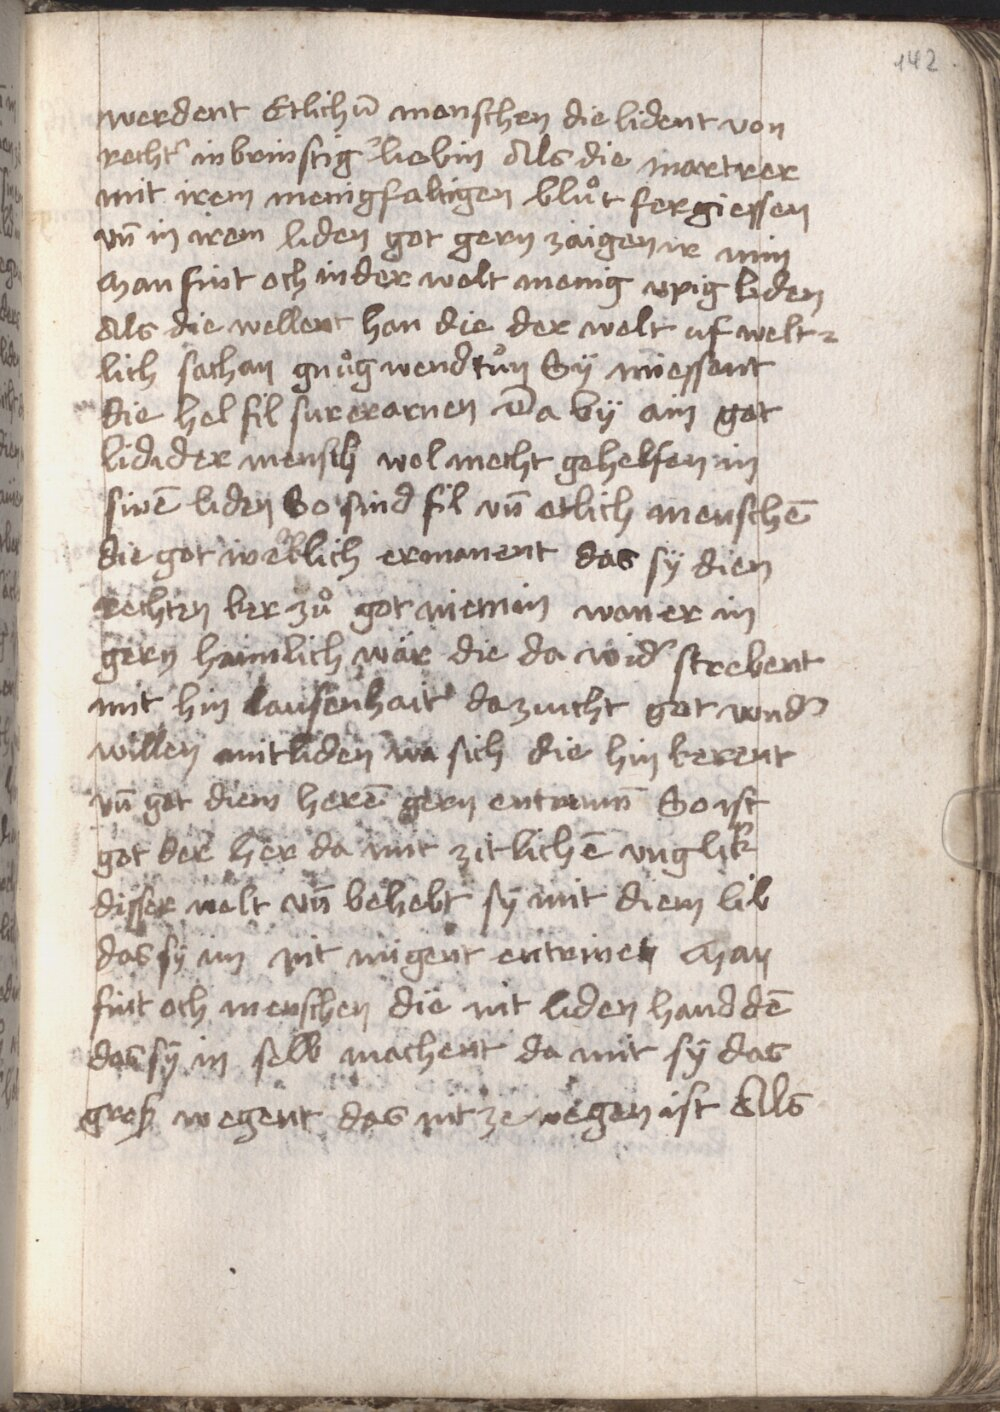 142
werdent Etlichū menschen die lident von
recht' inbrinstig' liebin Als die martrer
mit irem menigfaltigen blůt fergiessen
vn̄ in irem liden got gern zaigen ir min
Man fint och in der welt menig vpig liden
Als die wellent han die der welt uf welt-
lich sachan gnůg wend tůn Sÿ miessent
die hel fil surer arnen Da bÿ ain got
lidider mensch wol mecht gehelfen in
sinē liden So sind fil vn̄ etlich menschē
die got lich ermanent das sÿ dien
rechten ker zů got niemin wan er in
gern haimlich wär die da wid' strebent
mit hin laufenhait da zucht got wnd'
willen mit liden wa sich die hin kerent
vn̄ got diem herē gern entrunn̄ So ist
got der her da mit zitlichē vnglik
disser welt vn̄ behebt sÿ mit diem lib
das sÿ im nit mugent entrinen Man
fint och menschen die nit liden hand dē
das sÿ in selb machent da mit sÿ das
groß wegent das nit ze wegen ist Als